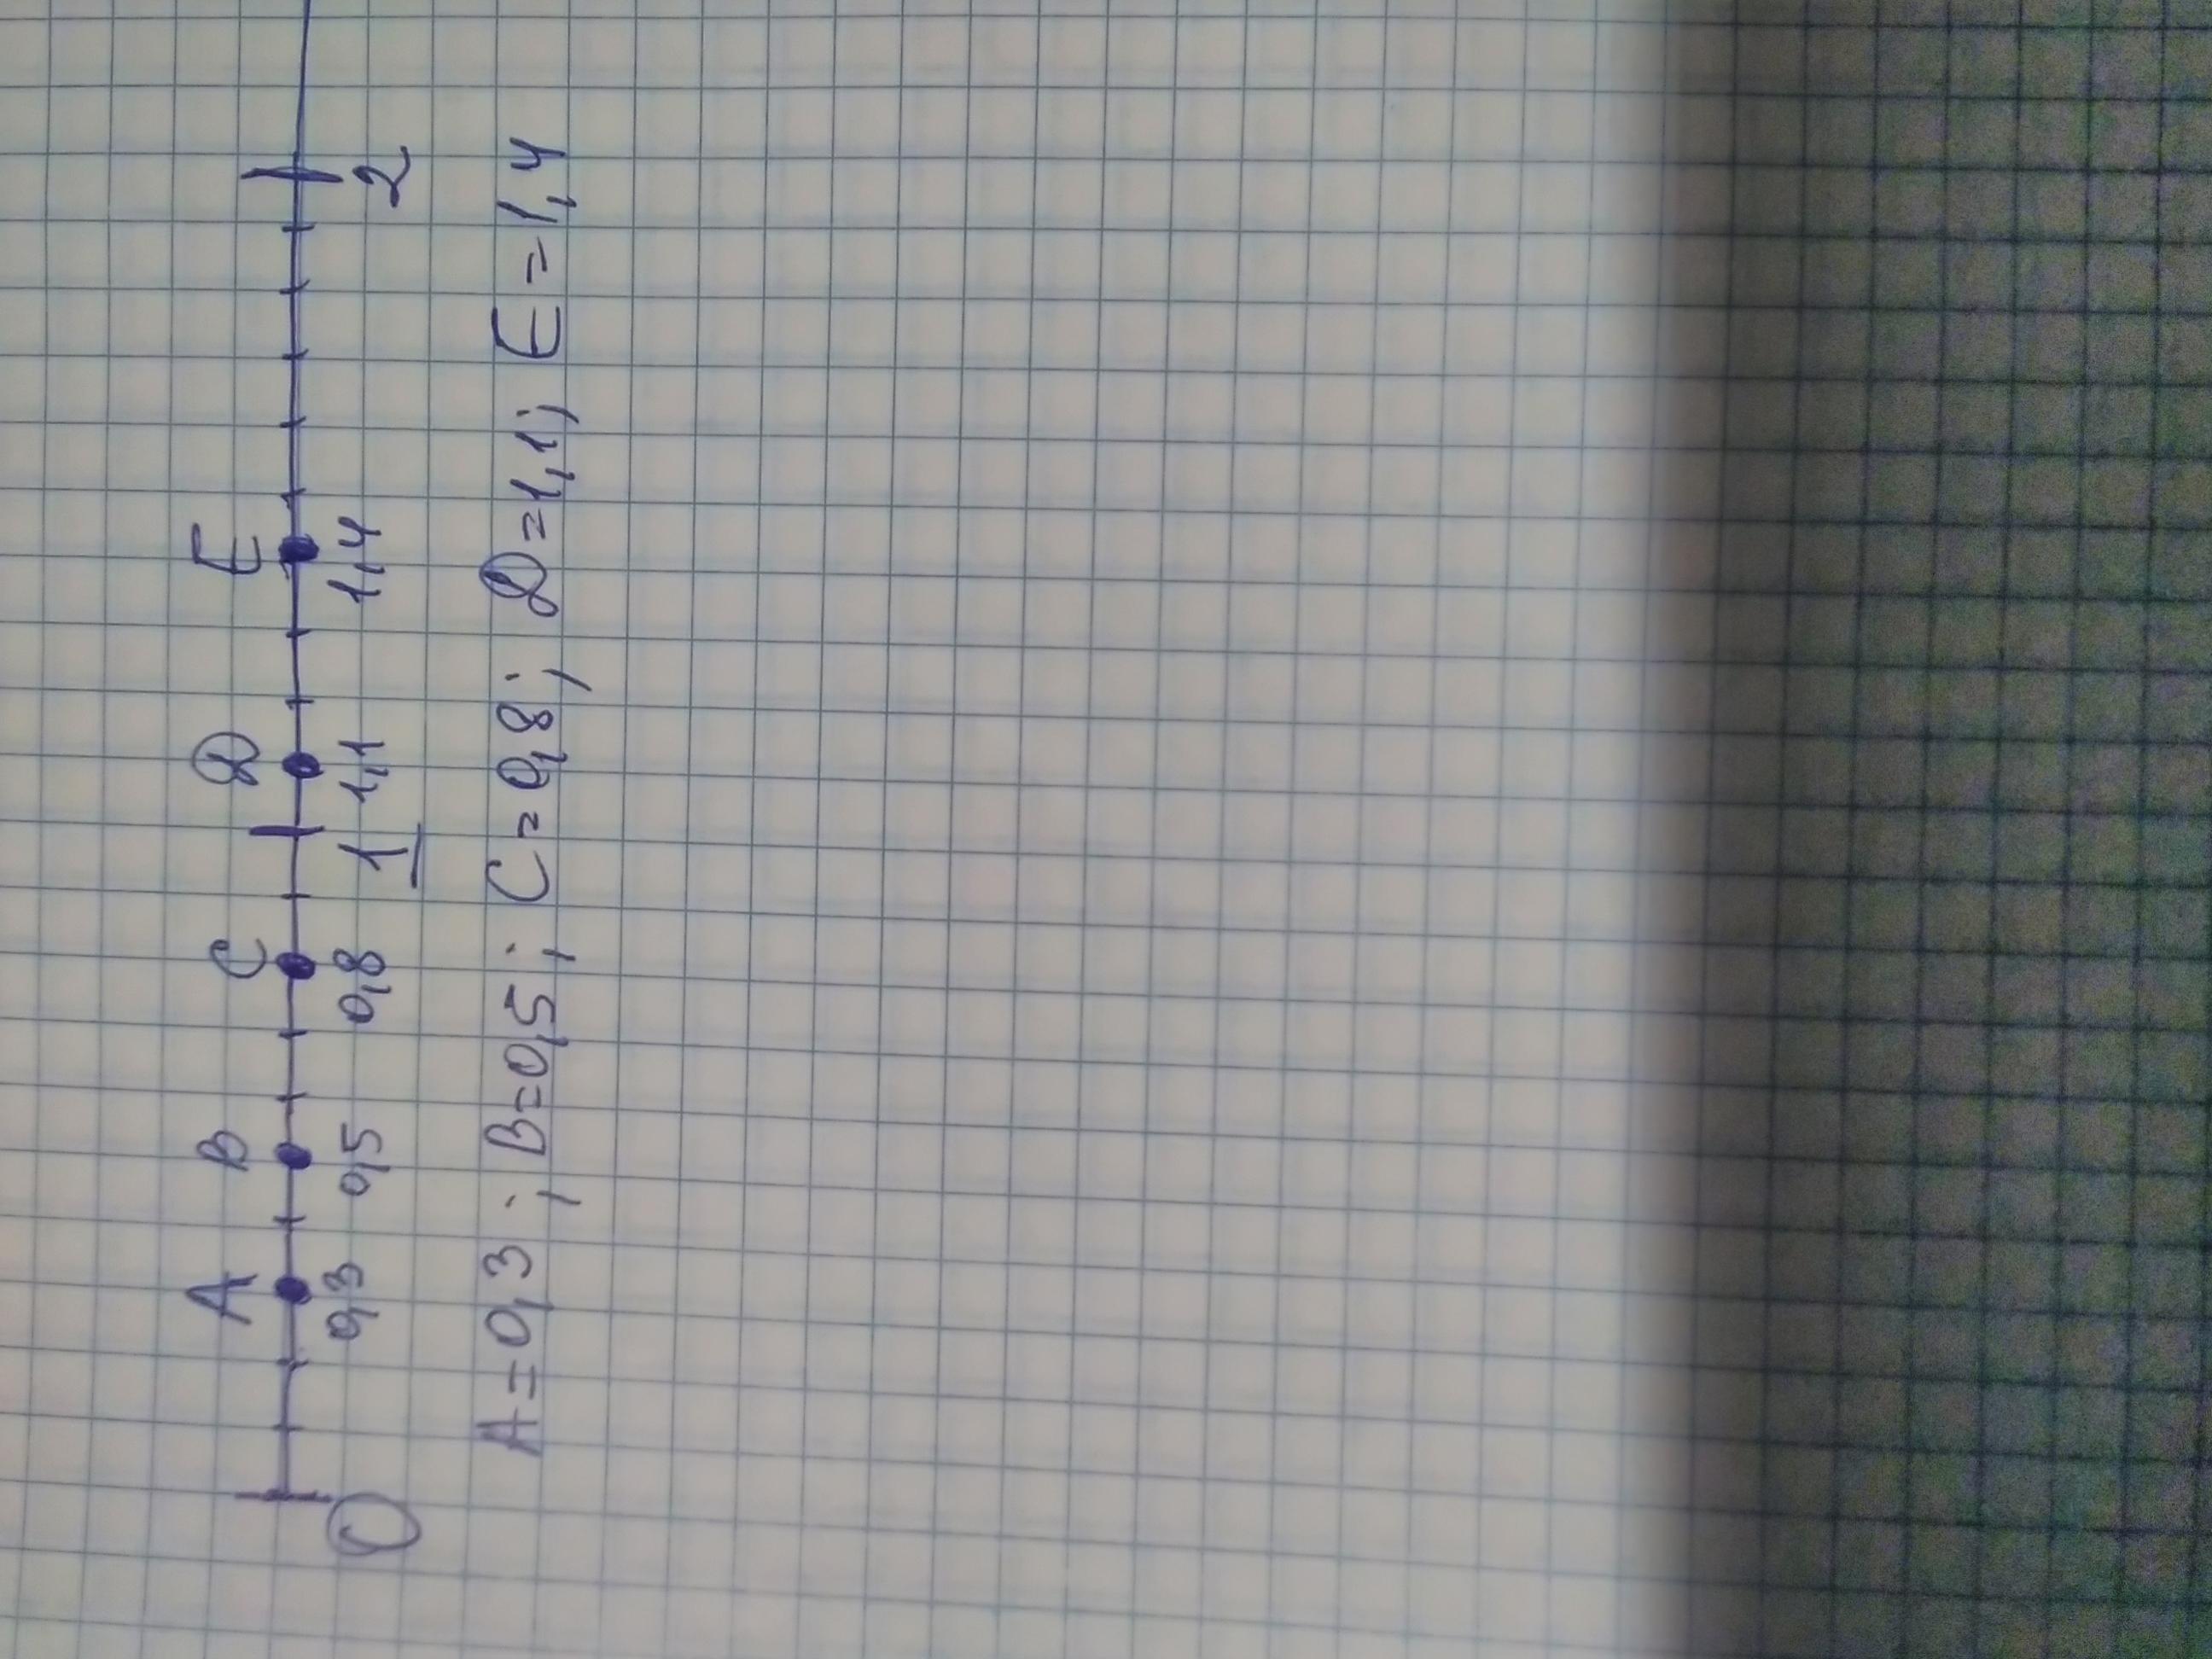 A B C D E
O 0,3 0,5 0,8 1 1,1 1,4 2
A=0,3; B=0,5; C=0,8; D=1,1; E=1,4